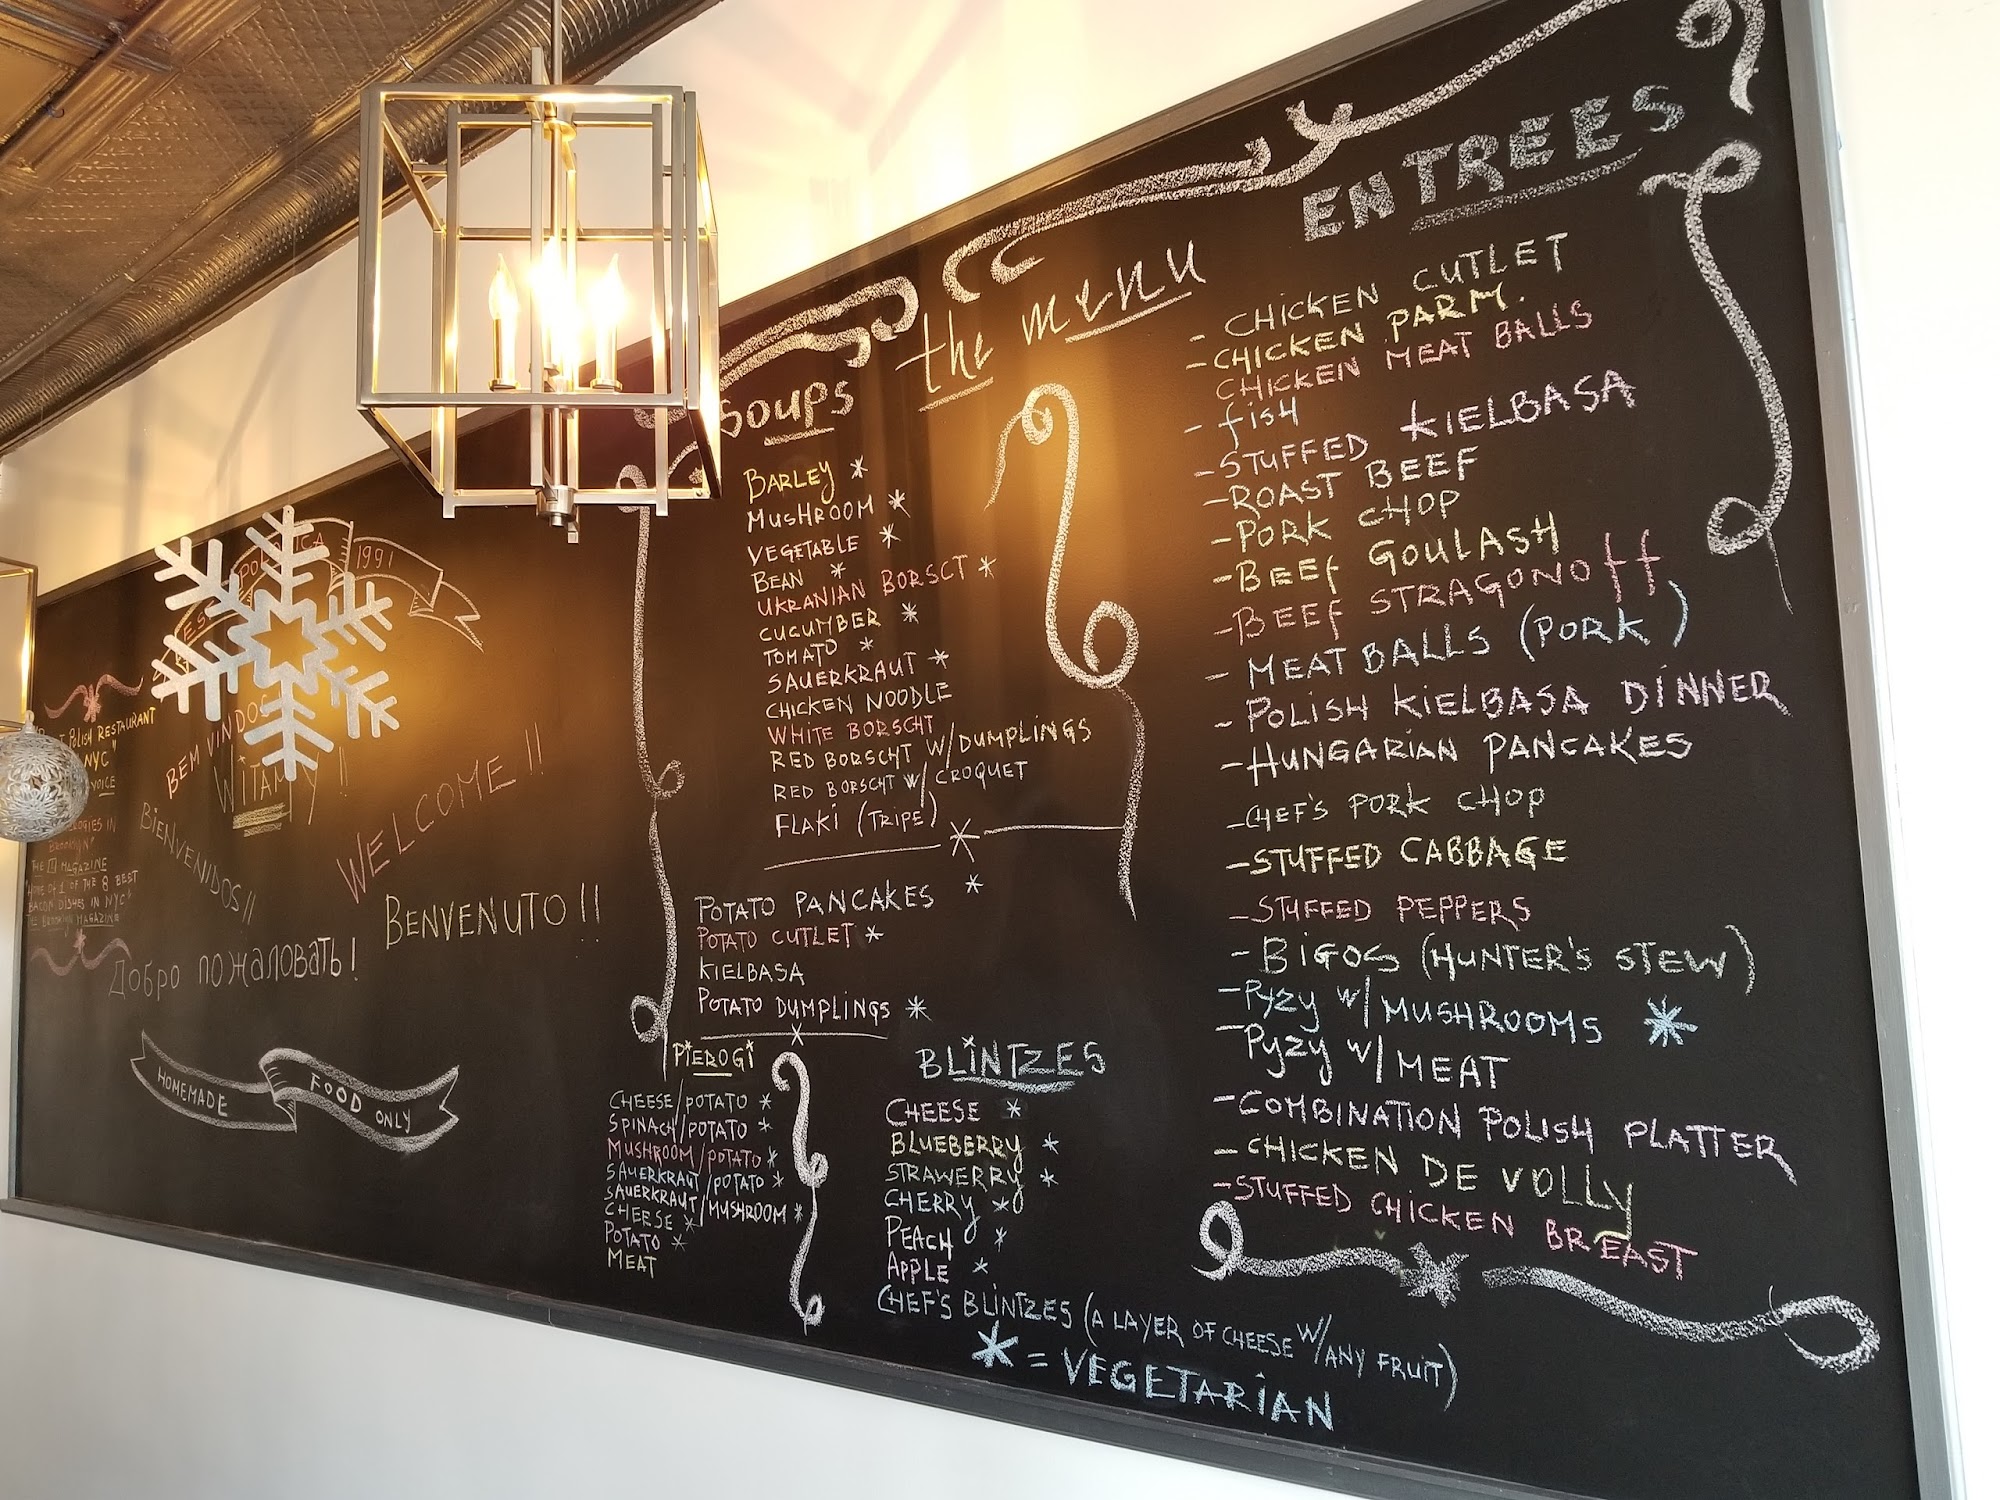 1991
POLISH RESTAURANT
NYC"
BROOKLYN"
THE L MAGAZINE
BACON DISHES IN NYC"
THE BROOKLYN MAGAZINE
BEM VINDOS
WITAMY!!
BIENVENIDOS!!
WELCOME!!
BENVENUTO!!
Добро пожаловать!
HOMEMADE FOOD ONLY
the menu
Soups
BARLEY *
MUSHROOM *
VEGETABLE *
BEAN *
UKRANIAN BORSCT *
CUCUMBER *
TOMATO *
SAUERKRAUT *
CHICKEN NOODLE
WHITE BORSCHT
RED BORSCHT W/DUMPLINGS
RED BORSCHT W/ CROQUET
FLAKI (TRIPE)
POTATO PANCAKES *
POTATO CUTLET *
KIELBASA
POTATO DUMPLINGS *
PIEROGI
CHEESE/POTATO *
SPINACH/POTATO *
MUSHROOM/POTATO *
SAUERKRAUT/POTATO *
SAUERKRAUT/MUSHROOM *
CHEESE *
POTATO *
MEAT
BLINTZES
CHEESE *
BLUEBERRY *
STRAWERRY *
CHERRY *
PEACH *
APPLE *
CHEF'S BLINTZES (A LAYER OF CHEESE W/ANY FRUIT)
* = VEGETARIAN
ENTREES
- CHICKEN CUTLET
- CHICKEN PARM.
CHICKEN MEAT BALLS
- fiSH
- STUFFED KIELBASA
- ROAST BEEF
- PORK CHOP
- BEEF GOULASH
- BEEF STRAGONOff
- MEATBALLS (PORK)
- POLISH KIELBASA DINNER
- HUNGARIAN PANCAKES
- CHEF'S PORK CHOP
- STUFFED CABBAGE
- STUFFED PEPPERS
- BIGOS (HUNTER'S STEW)
- PYZY W/MUSHROOMS *
- PYZY W/MEAT
- COMBINATION POLISH PLATTER
- CHICKEN DE VOLLY
- STUFFED CHICKEN BREAST